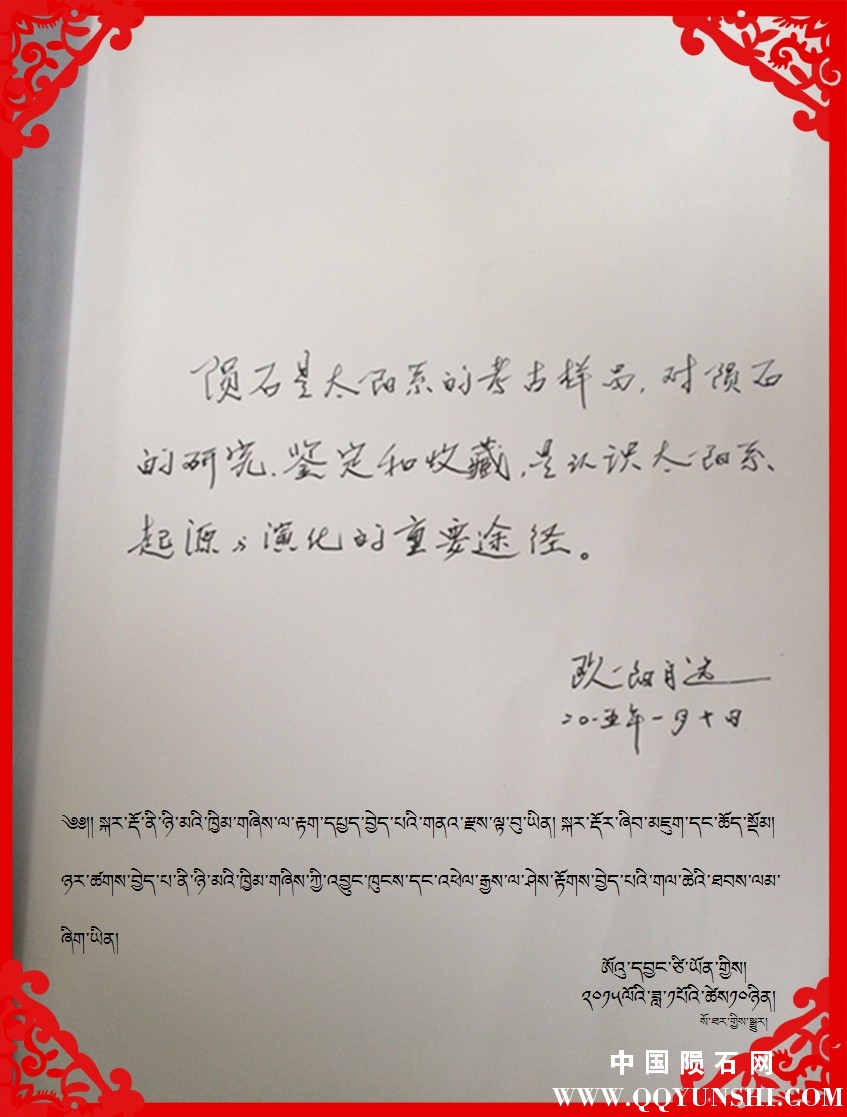 陨石是太阳系的考古样品,对陨石
的研究、鉴定和收藏,是认识太阳系、
起源与演化的重要途径。
欧阳自远
二〇一五年一月十日
༄༅།། སྐར་རྡོ་ནི་ཉི་མའི་ཁྱིམ་གཞིས་ལ་རྟག་དཔྱད་བྱེད་པའི་གནའ་རྫས་ལྟ་བུ་ཡིན། སྐར་རྡོར་ཞིབ་མཇུག་དང་ཚོད་སྡོམ།
ཉར་ཚགས་བྱེད་པ་ནི་ཉི་མའི་ཁྱིམ་གཞིས་ཀྱི་འབྱུང་ཁུངས་དང་འཕེལ་རྒྱས་ལ་ཤེས་རྟོགས་བྱེད་པའི་གལ་ཆེའི་ཐབས་ལམ་
ཞིག་ཡིན།
ཨོའུ་དབྱང་ཙི་ཡོན་གྱིས།
༢༠༡༥ལོའི་ཟླ་༡པོའི་ཚེས༡༠ཉིན།
སོ་ཐར་གྱིས་སྒྱུར།
中国陨石网
WWW.QQYUNSHI.COM